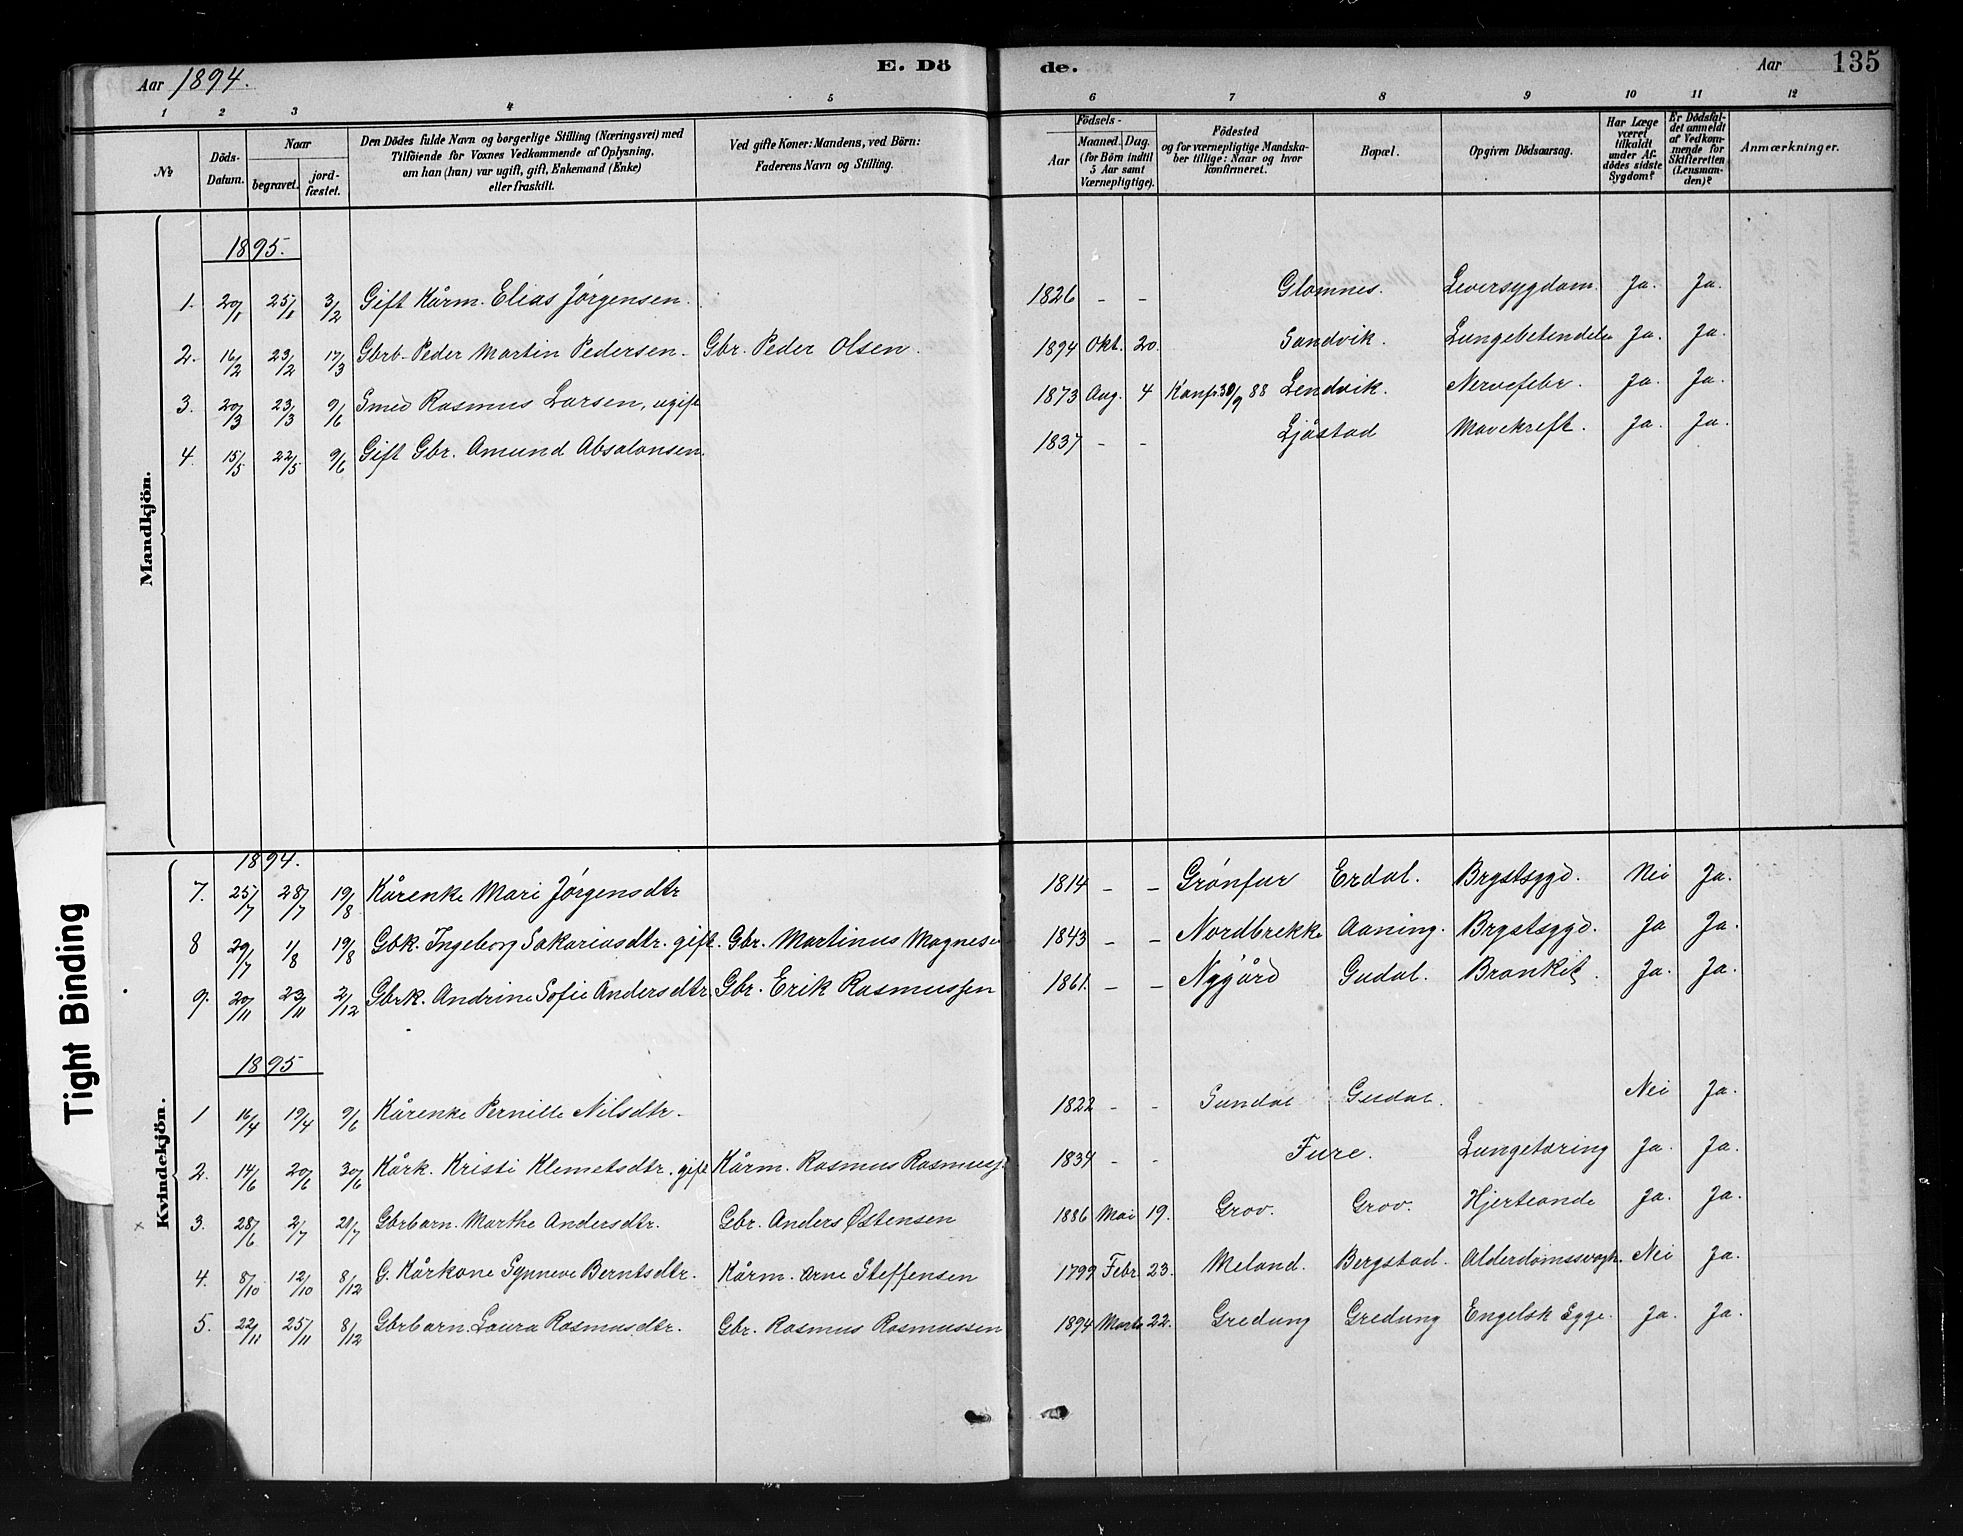 Aar 1894. E. Dö de. Aar 135
1 2 3 4 5 6 7 8 9 10 11 12
№
Döds-Datum.
Naar
begravet.
jord-fæstet.
Den Dödes fulde Navn og borgerlige Stilling (Næringsvei) med
Tilföiende for Voxnes Vedkommende af Oplysning,
om han (hun) var ugift, gift, Enkemand (Enke)
eller fraskilt.
Ved gifte Koner: Mandens, ved Börn:
Faderens Navn og Stilling.
Födsels-
Aar
Maaned. Dag.
(for Börn indtil
5 Aar samt
Værnepligtige).
Födested
og for værnepligtige Mandska-
ber tillige: Naar og hvor
konfirmeret.
Bopæl.
Opgiven Dödsaarsag.
Har Læge
været
tilkaldt
under Af-
dödes sidste
Sygdom?
Er Dödsfal-
det anmeldt
af Vedkom-
mende for
Skifteretten
(Lensman-
den)?
Anmærkninger.
Mandkjön.
1895.
1. 20/1 25/1 3/2 Gift Kårm. Elias Jørgensen. 1826 - - Glomnes. Leversygdom. Ja. Ja.
2. 16/2 23/2 17/3 Gbrb. Peder Martin Pedersen. Gbr. Peder Olsen. 1894 Okt. 20. Sandvik. Lungebetendelse Ja. Ja.
3. 20/3 23/3 9/6 Smed Rasmus Larsen, ugift 1873 Aug. 4 Konf. 30/9 88 Lendvik. Nervefebr. Ja. Ja.
4. 15/5 22/5 9/6 Gift Gbr. Amund Absalonsen. 1837 - - Ljåstad Mavekreft. Ja. Ja.
Kvindekjön.
1894.
7. 25/7 28/7 19/8 Kårenke Mari Jørgensdtr 1814 - - Grønfur Erdal. Brystsygd. Nei Ja.
8 29/7 1/8 19/8 Gbk. Ingeborg Sakariasdtr. gift. Gbr. Martinus Magnese 1843 - - Nordbrekke Aaning. Brystsygd. Ja Ja.
9. 20/11 23/11 2/12 Gbrk. Andrine Sofie Andersdtr. Gbr. Erik Rasmussen 1861. - - Nygård Gudal. Bronkit. Ja. Ja.
1895
1 16/4 19/4 9/6 Kårenke Pernille Nilsdtr. 1822 - - Sundal Gudal. Nei Ja.
2. 14/6 20/6 30/6 Kårk. Kristi Klemetsdtr. gift Kårm. Rasmus Rasmuss. 1834 - - Fure. Lungetæring Ja. Ja.
3. 28/6 2/7 21/7 Gbrbarn. Marthe Andersdtr. Gbr. Anders Østensen 1886 Mai 19. Grov. Grov. Hjerteonde Ja. Ja.
4. 8/10 12/10 8/12 G. Kårkone Synneve Berntsdtr. Kårm. Arne Steffensen 1799 Febr. 23. Meland. Bergstad. Alderdomssvagh. Nei Ja.
5. 22/11 25/11 8/12 Gbrbarn. Laura Rasmusdtr. Gbr. Rasmus Rasmussen 1894 Marts 22. Gredung Gredung Engelsk Syge. Ja. Ja.
Tight Binding